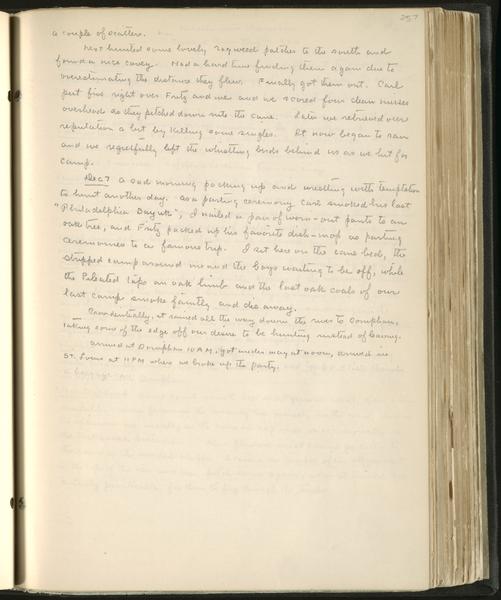 257
a couple of scatters.
Next hunted some lovely ragweed patches to the south and
found a nice covey. Had a hard time finding them again due to
overestimating the distance they flew. Finally got them out. Carl
put five right over Fritz and me and we scored four clean misses
overhead as they pitched down into the cane. Later we retrieved our
reputation a bit by killing some singles. It now began to rain
and we regretfully left the whistling birds behind us as we hit for
camp.
Dec 7 A sad morning packing up and wrestling with temptation
to hunt another day. As a parting ceremony Carl smoked his last
"Philadelphia Bayuk", I nailed a pair of worn-out pants to an
oak tree, and Fritz packed up his favorite dish-mop as parting
ceremonies to a famous trip. I sit here on the cane bed, the
stripped camp around me and the boys waiting to be off, while
the Pileated taps an oak limb and the last oak coals of our
last camp smoke faintly and die away.
Incidentally, it rained all the way down the river to Doniphan,
taking some of the edge off our desire to be hunting instead of leaving.
Arrived at Doniphan 10 AM, got under way at noon, arrived in
St. Louis at 11 PM where we broke up the party.